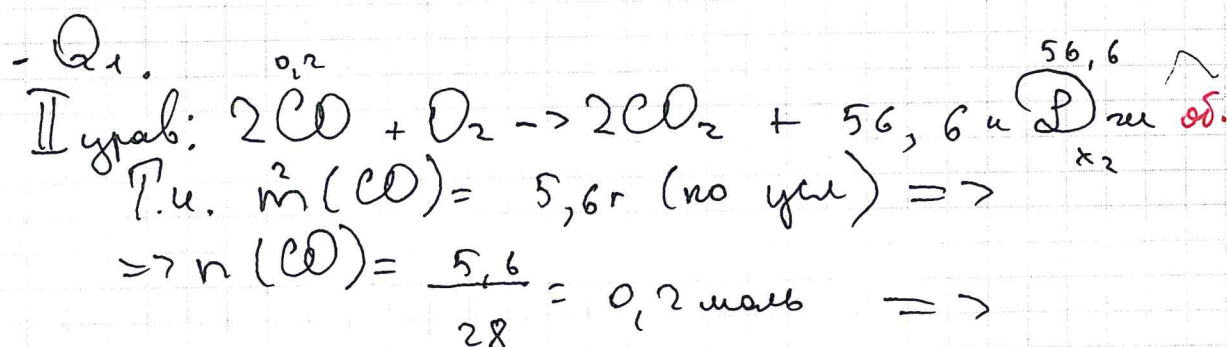 - Q₁.
0,2 56,6
II урав: 2CO + O₂ -> 2CO₂ + 56,6 кДж об.
2 x₂
Т.к. m(CO) = 5,6г (по усл) =>
=> n(CO) = 5,6/28 = 0,2 моль =>